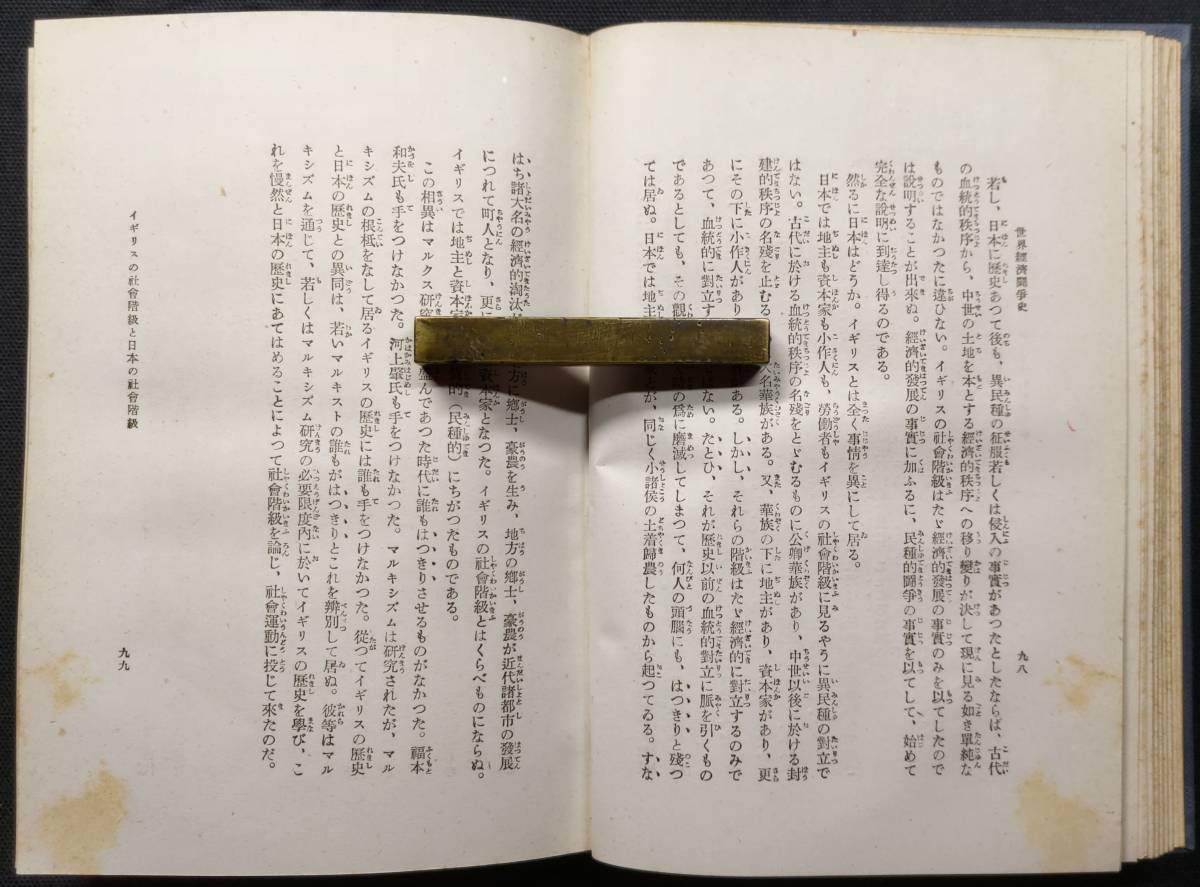 世界經濟鬪爭史
九八
若し、日本に歷史あつて後も、異民種の征服若しくは侵入の事實があつたとしたならば、古代
の血統的秩序から、中世の土地を本とする經濟的秩序への移り變りが決して現に見る如き單純な
ものではなかつたに違ひない。イギリスの社會階級はたゞ經濟的發展の事實のみを以てしたので
は說明することが出來ぬ。經濟的發展の事實に加ふるに、民種的鬪爭の事實を以てして、始めて
完全な說明に到達し得るのである。
然るに日本はどうか。イギリスとは全く事情を異にして居る。
日本では地主も資本家も小作人も、勞働者もイギリスの社會階級に見るやうに異民種の對立で
はない。古代に於ける血統的秩序の名殘をとゞむるものに公卿華族があり、中世以後に於ける封
建的秩序の名殘を止むる
大名華族がある。又、華族の下に地主があり、資本家があり、更
にその下に小作人があり
ある。しかし、それらの階級はたゞ經濟的に對立するのみで
あつて、血統的に對立す
はない。たとひ、それが歷史以前の血統的對立に脈を引くもの
であるとしても、その觀
の爲に磨滅してしまつて、何人の頭腦にも、はつきりと殘つ
ては居ぬ。日本では地主
が、同じく小諸侯の土着歸農したものから起つてゐる。すな
はち諸大名の經濟的淘汰
方に鄕士、豪農を生み、地方の鄕士、豪農が近代諸都市の發展
につれて町人となり、更に
資本家となつた。イギリスの社會階級とはくらべものにならぬ。
イギリスでは地主と資本家
的(民種的)にちがつたものである。
この相異はマルクス研究
盛んであつた時代に誰もはつきりさせるものがなかつた。福本
和夫氏も手をつけなかつた。河上肇氏も手をつけなかつた。マルキシズムは研究されたが、マル
キシズムの根柢をなして居るイギリスの歷史には誰も手をつけなかつた。從つてイギリスの歷史
と日本の歷史との異同は、若いマルキストの誰もがはつきりとこれを辨別して居ぬ。彼等はマル
キシズムを通じて、若しくはマルキシズム研究の必要限度內に於いてイギリスの歷史を學び、こ
れを慢然と日本の歷史にあてはめることによつて社會階級を論じ、社會運動に投じて來たのだ。
イギリスの社會階級と日本の社會階級
九九